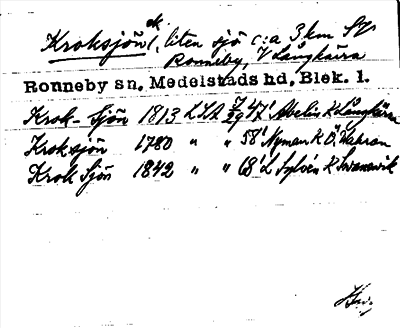 ek.
Kroksjön, liten sjö c:a 3 km SV
Ronneby, V Långkärra
Ronneby sn, Medelstads hd, Blek. l.
Krok-Sjön 1813 LSA 7/29 47' Abelin K Långkärra
Kroksjön 1780 " " 58' Nyman K Ö. Wahran
Krok Sjön 1842 " " 68' L Sylvén K Svanevik